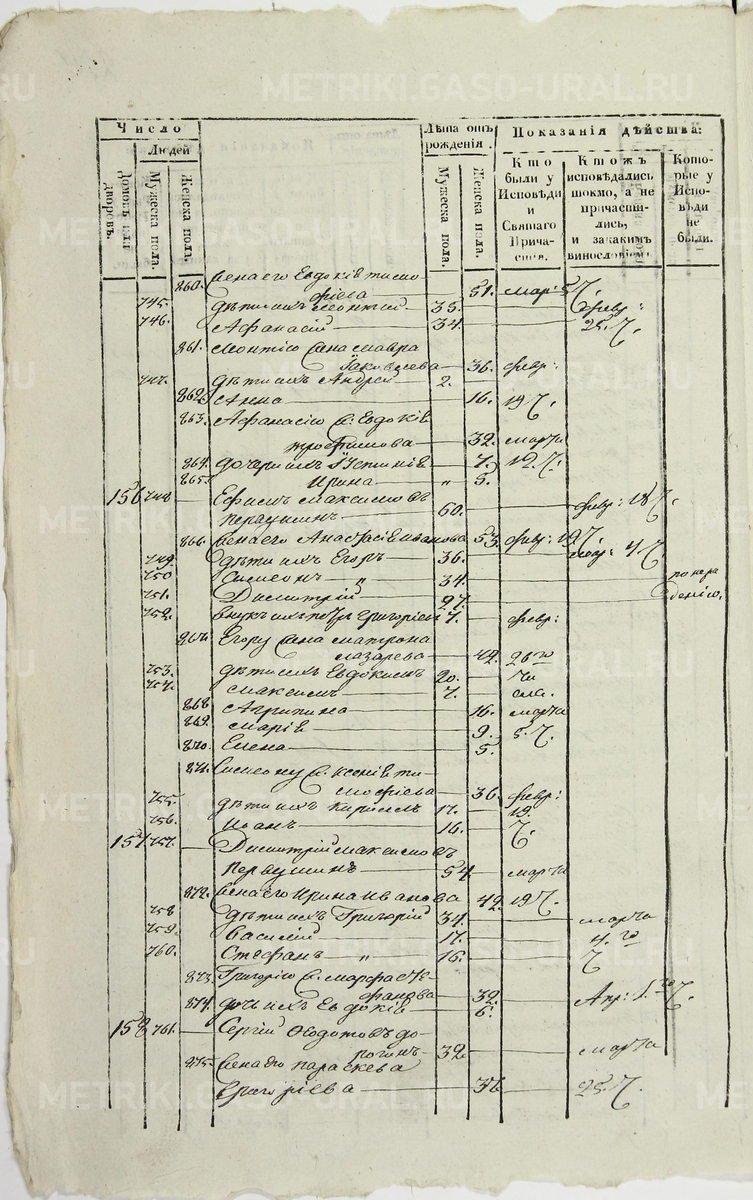 Число
Людей
Домовъ или дворовъ.
Мужеска пола.
Женска пола.
Лѣта отъ рожденія.
Мужеска пола.
Женска пола.
Показанія дѣйства:
Кто были у Исповѣди и Святаго Причастія.
Ктожъ исповѣдались токмо, а не причастились, и закакимъ винословіемъ.
Которые у Исповѣди не были.
860. жена его Евдокія тимо-
фѣева 51. мар: 5 Ч.
745. дѣти ихъ Леонтий 35. февр:
746. Афанасий 34. 25. Ч.
861. Леонтію жена мавра
Яковлева 36. февр:
747. дѣти ихъ Андрей 2.
862. Анна 16. 19 Ч.
863. Афанасію ж. Евдокія
трофимова 32. марта
864. дочери ихъ Устинія 7. 12. Ч.
865. Ирина " 5.
156 748 Ефимъ максимовъ
первушинъ 60. февр: 18 Ч.
866. жена его Анастасія иванова 53. февр: 19 Ч.
749. дѣти ихъ Егоръ 36. мар: 4 Ч.
750 Симеонъ " 34. по нера
751. Димитрій 27. дению.
752. внукъ ихъ петръ григорьевъ 7. февр:
867. Егору жена матрона
лазарева 42. 26го
753. дѣти ихъ Евдокимъ 20. чи
754. максимъ 7. сла.
868 Агрипина 16. марта
869. марія 9. 5 Ч.
870. Елена 5.
871. Симеону ж. ксенія ти
мофѣева 36. февр:
755. дѣти ихъ кирилъ 17. 19.
756. Иванъ 16. Ч.
157 757. Димитрій максимовъ
первушинъ 54 марта
872. жена его Ирина иванова 42. 19 Ч.
758 дѣти ихъ Григорій 34. марта
759. Василий 17. 4.го
760. Стефанъ " 16. Ч
873. Григорію ж. марфа сте-
фанова 32. Апр: 1го Ч.
874. дочь ихъ Евдокія 6.
158 761. Сергій Ѳедотовъ до-
рогинъ 32. марта
875. жена его параскева
григорьева 37 25. Ч.
METRIKI.GASO-URAL.RU